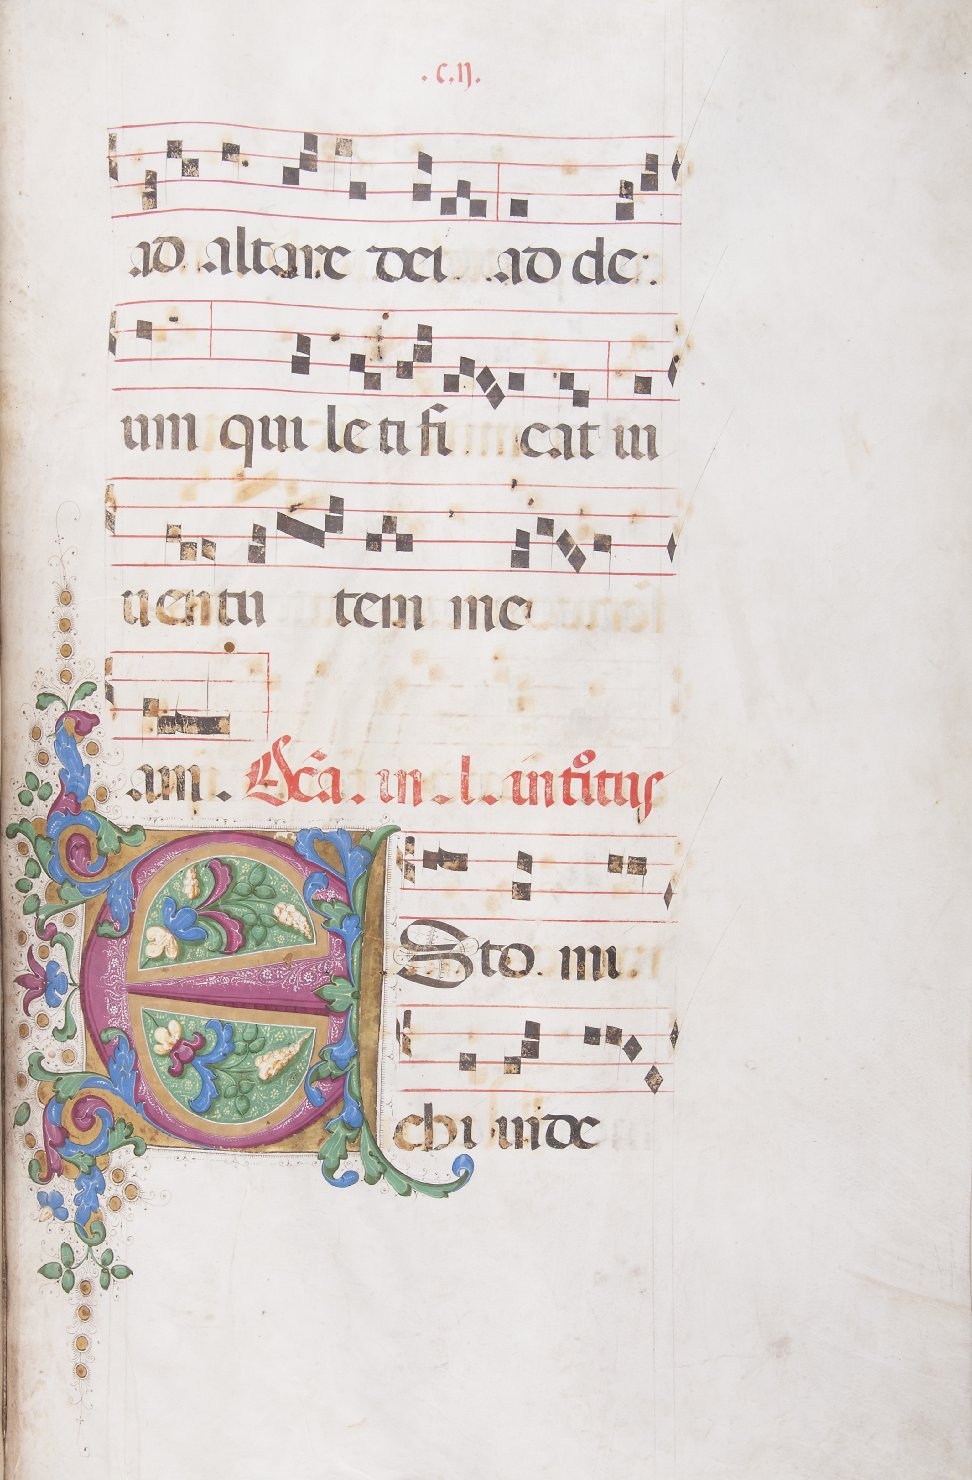 .c.ij.
ad altare dei ad de:
um qui letifi cat iu
uentu tem me
am. Fc̃a. in .l. introitus
Esto mi
chi in de